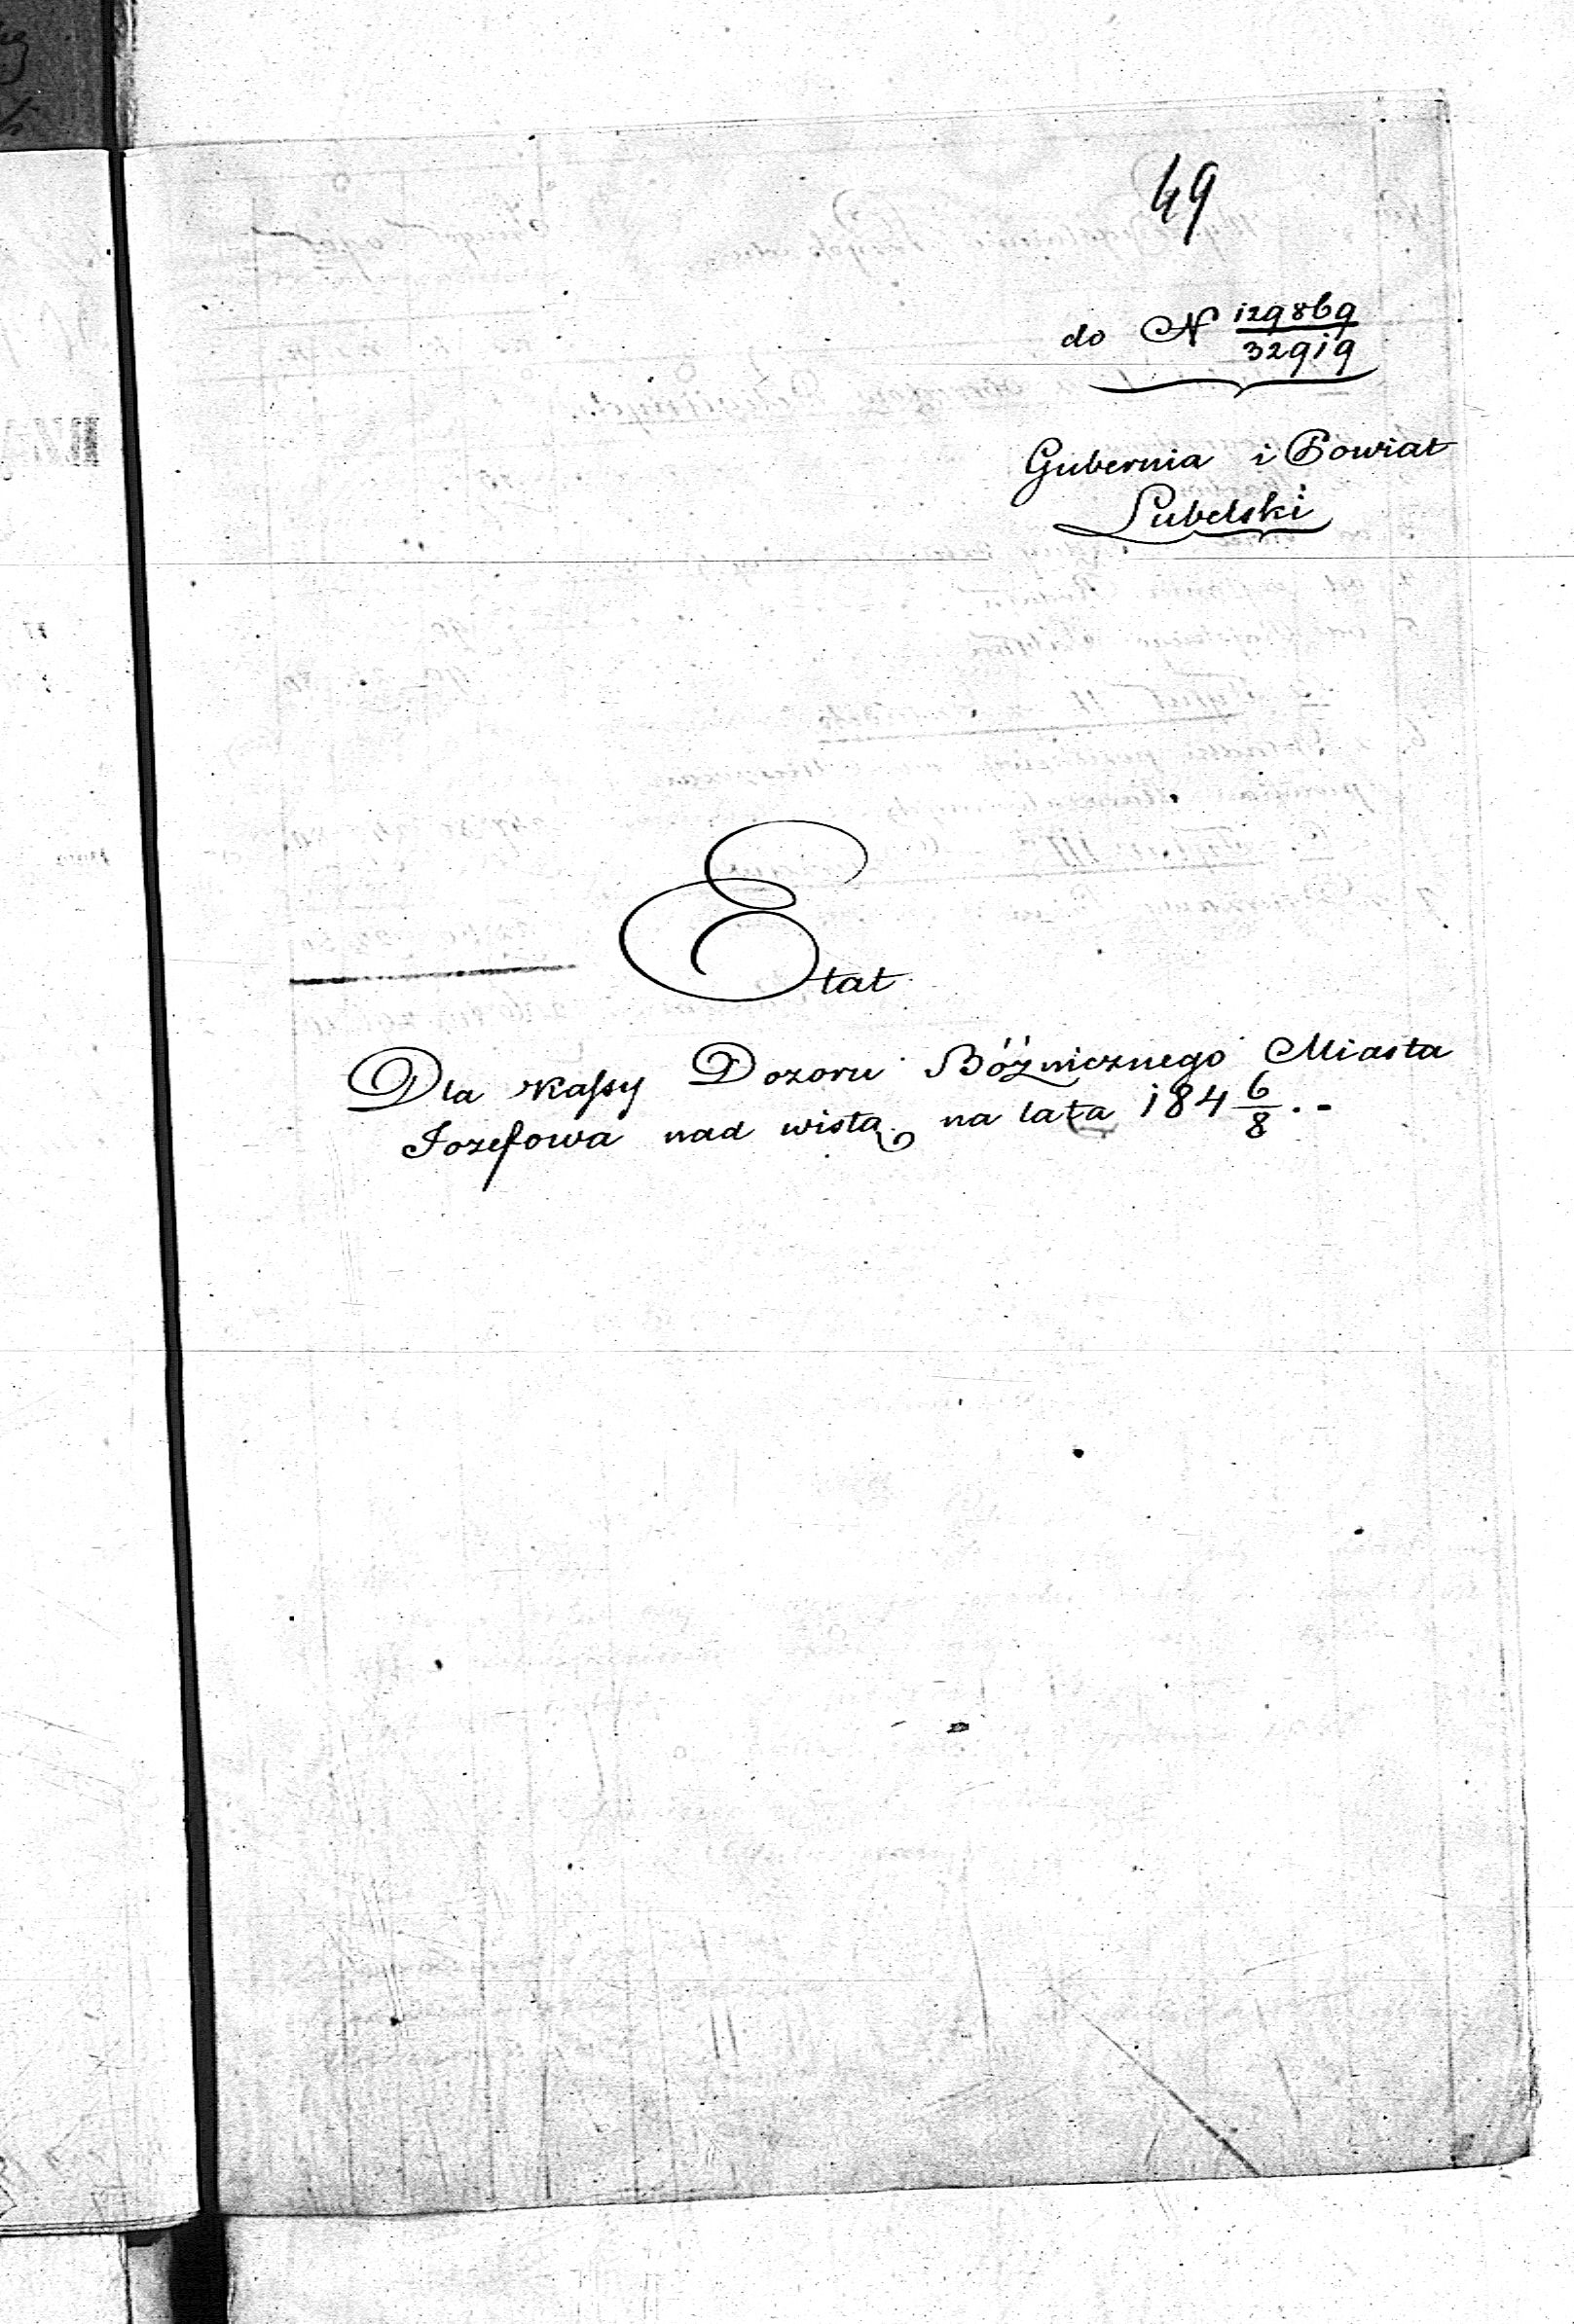 49
do N 129869/32919
Gubernia i Powiat
Lubelski
Etat
Dla Kassy Dozoru Bóżnicznego Miasta
Jozefowa nad wisłą na lata 184 6/8 . -